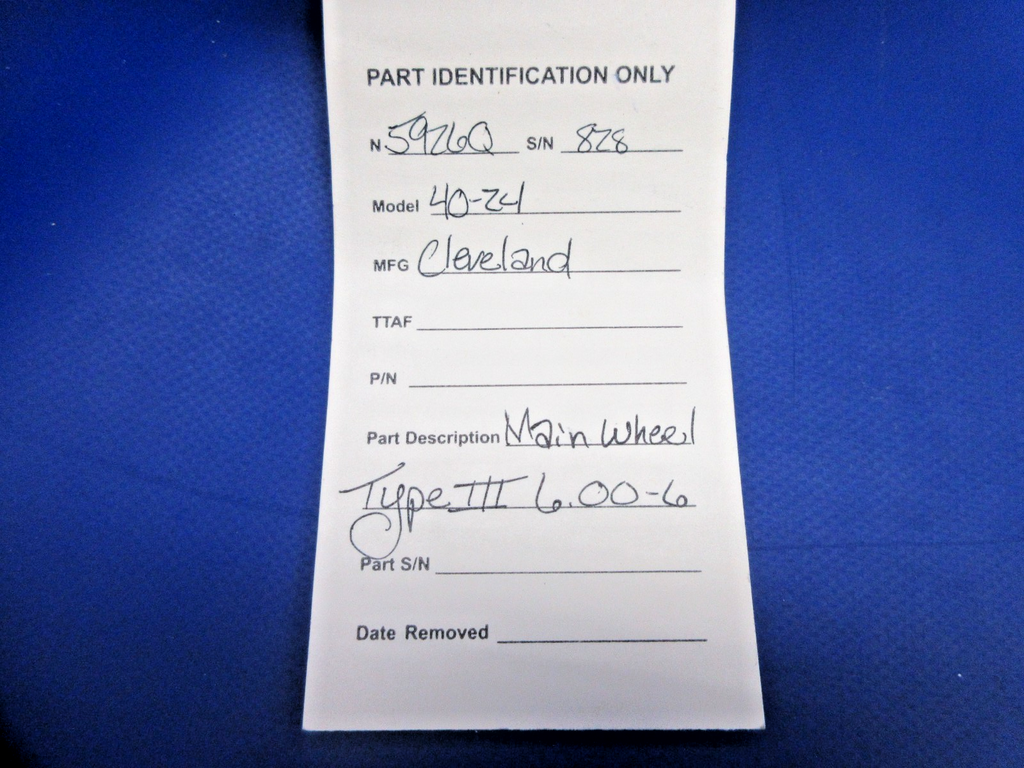 PART IDENTIFICATION ONLY
N 5926Q S/N 828
Model 40-24
MFG Cleveland
TTAF
P/N
Part Description Main Wheel
Type III 6.00-6
Part S/N
Date Removed